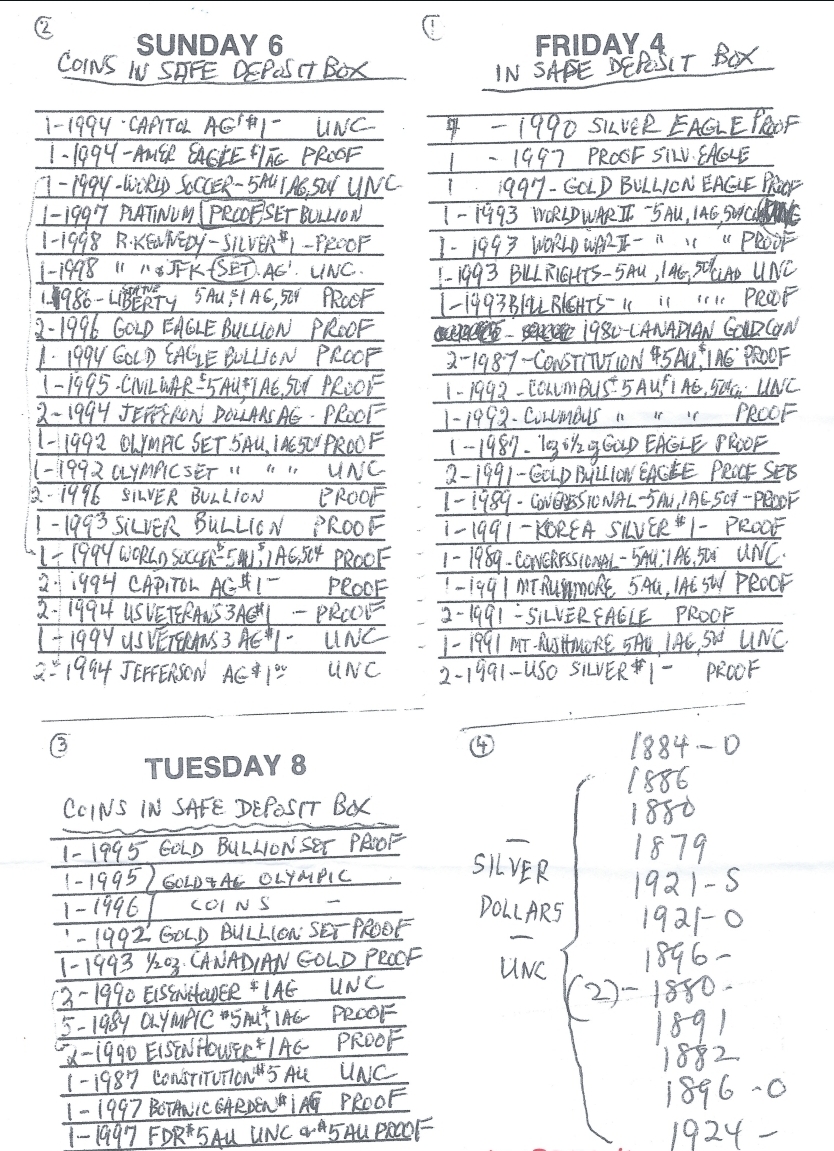 ②
SUNDAY 6
COINS IN SAFE DEPOSIT BOX
1-1994 CAPITOL AG $1- UNC
1-1994-AMER EAGLE $1AG PROOF
1-1994-WORLD SOCCER-5AU 1AG,50¢ UNC
1-1997 PLATINUM PROOF SET BULLION
1-1998 R.KENNEDY-SILVER $1-PROOF
1-1998 " " & JFK-SET AG. UNC.
1-1986-STATUE LIBERTY 5AU $1AG,50¢ PROOF
2-1996 GOLD EAGLE BULLION PROOF
1-1994 GOLD EAGLE BULLION PROOF
1-1995-CIVIL WAR-$5AU $1AG,50¢ PROOF
2-1994 JEFFERON DOLLARS AG- PROOF
1-1992 OLYMPIC SET 5AU,1AG 50¢ PROOF
1-1992 OLYMPIC SET " " " UNC
2-1996 SILVER BULLION PROOF
1-1993 SILVER BULLION PROOF
1-1994 WORLD SOCCER $5AU,$1AG,50¢ PROOF
2-1994 CAPITOL AG $1- PROOF
2-1994 US VETERANS 3 AG $1 - PROOF
1-1994 US VETERANS 3 AG $1- UNC
2-1994 JEFFERSON AG $1.00 UNC
①
FRIDAY 4
IN SAFE DEPOSIT BOX
- 1990 SILVER EAGLE PROOF
1 - 1997 PROOF SILV. EAGLE
1 1997-GOLD BULLION EAGLE PROOF
1-1993 WORLD WAR II -5AU,1AG,50¢
1-1993 WORLD WAR II- " " " PROOF
1-1993 BILL RIGHTS-5AU,1AG,50¢ CLAD UNC
1-1993 BILL RIGHTS- " " " " PROOF
1980-CANADIAN GOLD COIN
2-1987-CONSTITUTION $5AU,$1AG PROOF
1-1992-COLUMBUS $5AU,$1AG,50¢ UNC
1-1992-COLUMBUS " " " PROOF
1-1987- GOLD EAGLE PROOF
2-1991-GOLD BULLION EAGLE PROOF SETS
1-1989-CONGRESSIONAL-5AU,1AG,50¢-PROOF
1-1991-KOREA SILVER $1- PROOF
1-1989-CONGRESSIONAL-5AU,1AG,50¢ UNC.
1-1991 MT RUSHMORE 5AU,1AG 50¢ PROOF
2-1991-SILVER EAGLE PROOF
1-1991 MT-RUSHMORE 5AU,1AG,50¢ UNC
2-1991-USO SILVER $1- PROOF
③
TUESDAY 8
COINS IN SAFE DEPOSIT BOX
1-1995 GOLD BULLION SET PROOF
1-1995 GOLD & AG OLYMPIC
1-1996 COINS -
1-1992 GOLD BULLION SET PROOF
1-1993 1/2 oz. CANADIAN GOLD PROOF
2-1990 EISENHOWER $1AG UNC
5-1984 OLYMPIC $5AU $1AG PROOF
2-1990 EISENHOWER $1AG PROOF
1-1987 CONSTITUTION $5AU UNC
1-1997 BOTANIC GARDEN $1AG PROOF
1-1997 FDR $5AU UNC & $5AU PROOF
④
SILVER
DOLLARS
UNC
1884-O
1886
1880
1879
1921-S
1921-O
1896-
(2)-1880-
1891
1882
1896-O
1924-